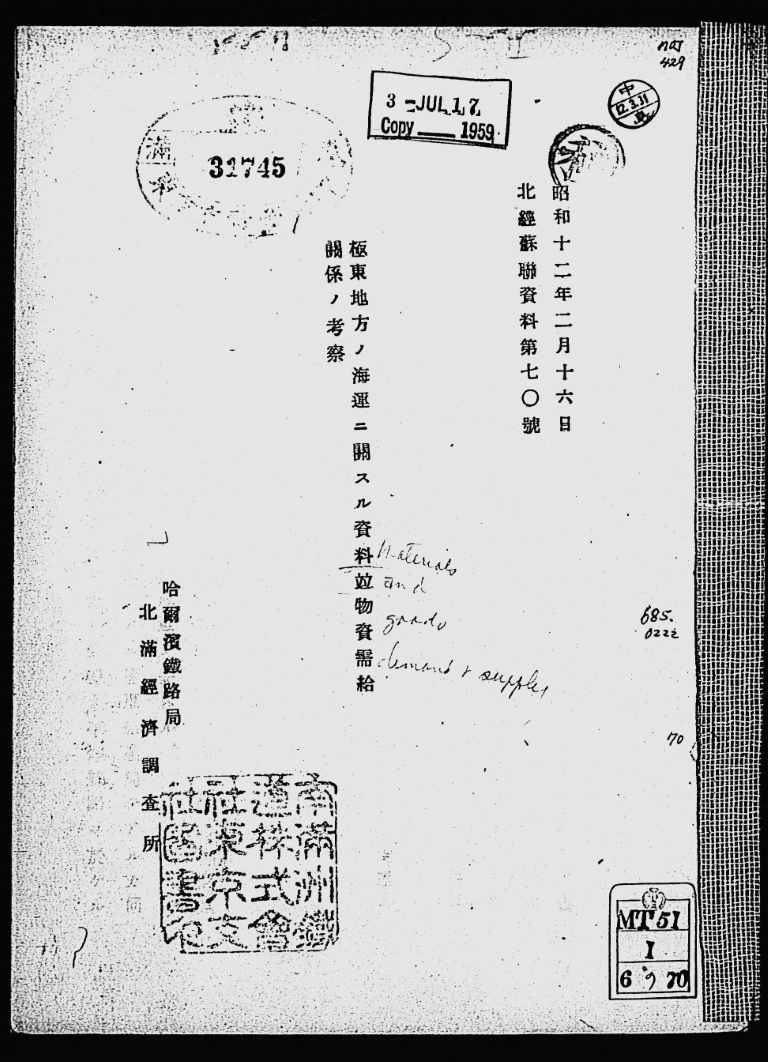 MOJ
429
3 - JUL 17
Copy 1959
中
12.3.31
31745
昭和十二年二月十六日
北經蘇聯資料第七〇號
極東地方ノ海運ニ關スル資料竝物資需給
關係ノ考察
Materials
and
goods
demand + supplies
哈爾濱鐵路局
北滿經濟調査所
685.
70
南滿洲鐵
道株式會
社東京支
社圖書
MT 51
1
6 の 70